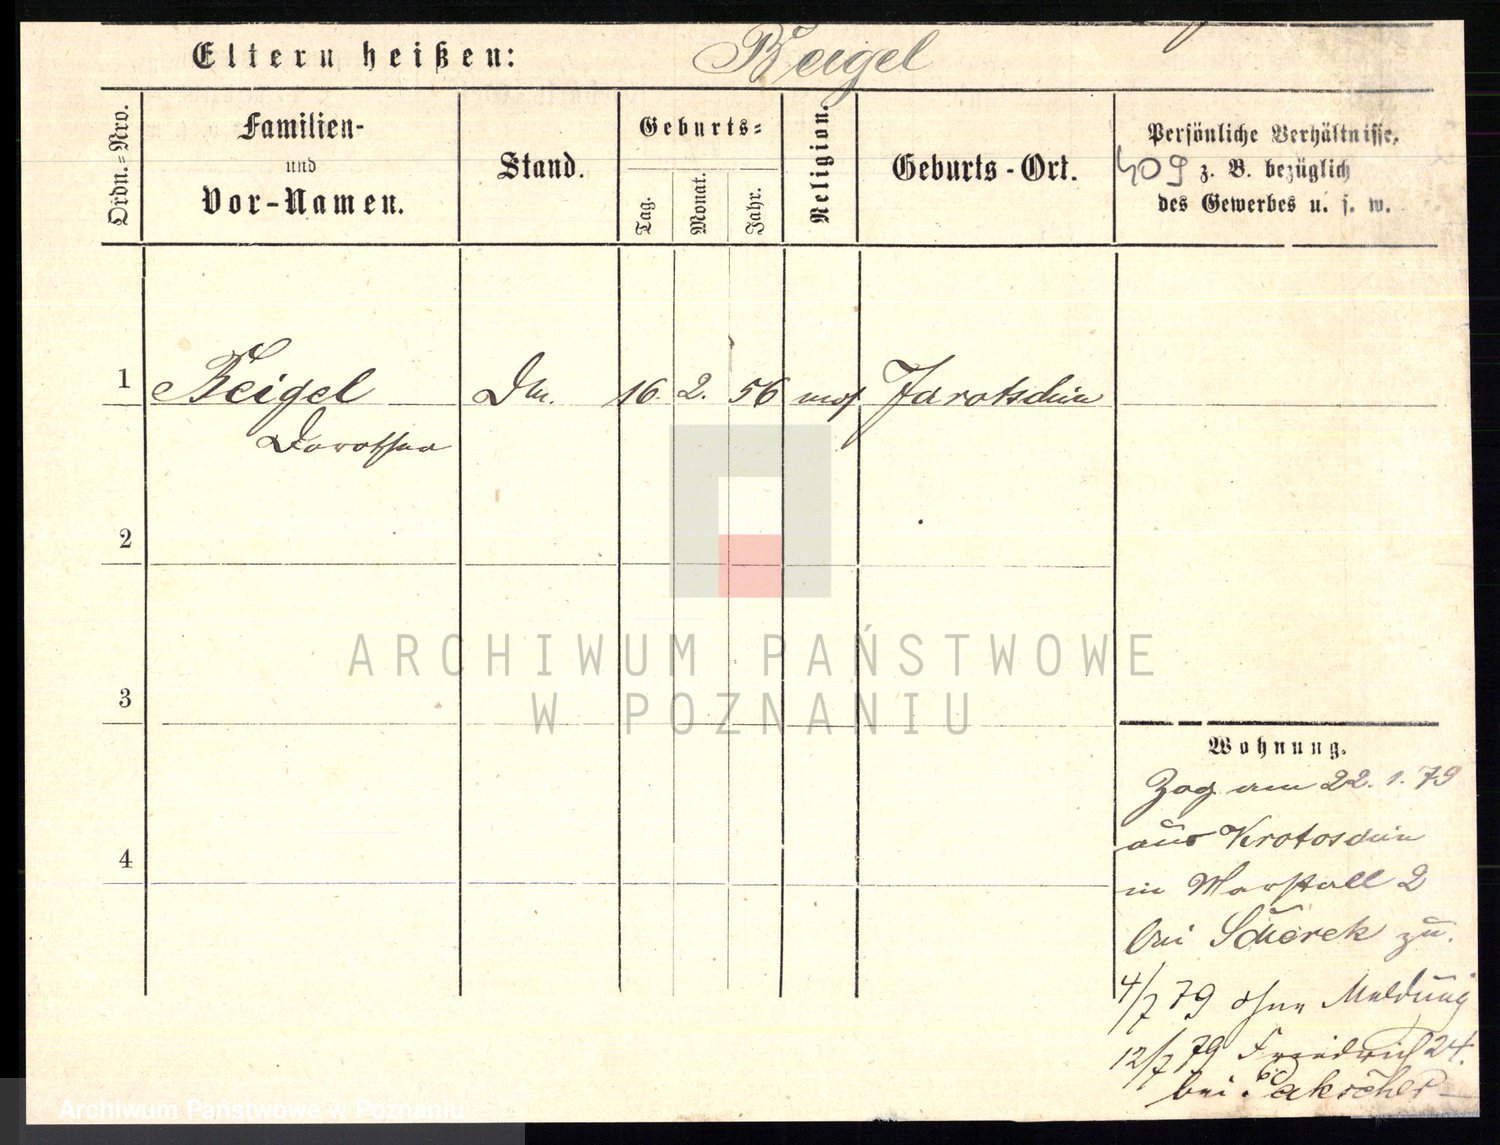 Eltern heißen: Beigel
Ordn.=Nro.
Familien-
und
Vor-Namen.
Stand.
Geburts=
Tag.
Monat.
Jahr.
Religion.
Geburts-Ort.
Persönliche Verhältnisse,
409 z. B. bezüglich
des Gewerbes u. s. w.
1 Beigel 16. 2. 56 mos Jarotschin
Dorothea
2
3
4
ARCHIWUM PAŃSTWOWE
W POZNANIU
Wohnung.
Zog am 22. 1. 79
aus Krotoschin
in Marstall 2
bei zu.
4/7 79 ohne Meldung
12/7 79 Friedrich 24.
bei Pakscher
Archiwum Państwowe w Poznaniu